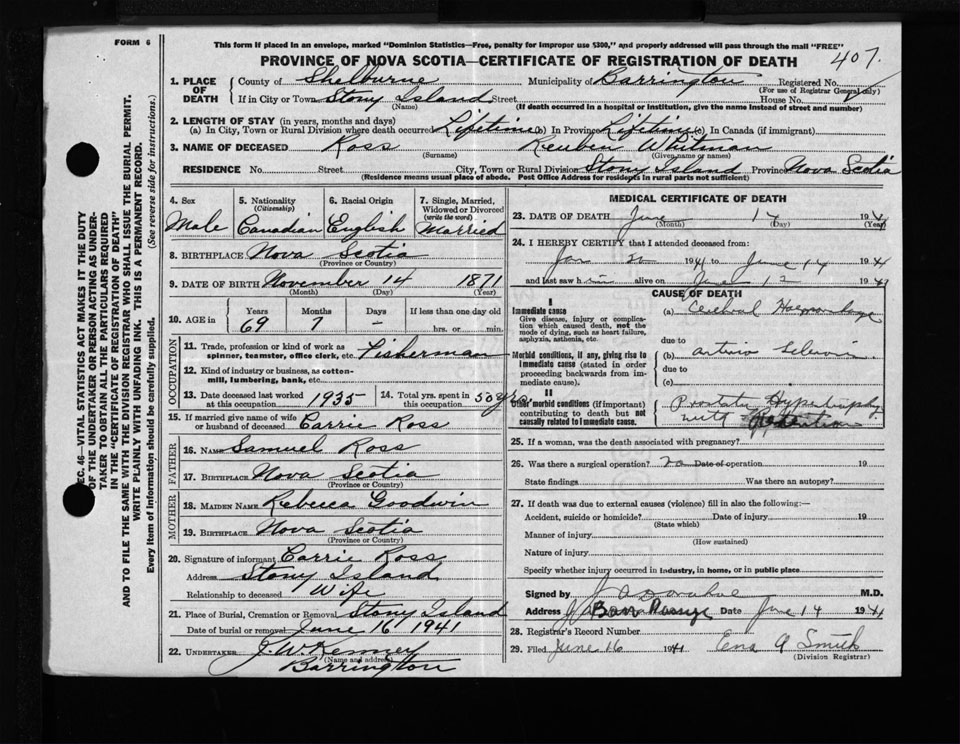 FORM 6
This form if placed in an envelope, marked "Dominion Statistics—Free, penalty for improper use $300," and properly addressed will pass through the mail "FREE"
PROVINCE OF NOVA SCOTIA—CERTIFICATE OF REGISTRATION OF DEATH
407
1. PLACE OF DEATH County of Shelburne Municipality of Barrington Registered No.
(For use of Registrar General only)
If in City or Town Stony Island Street House No.
(Name) (If death occurred in a hospital or institution, give the name instead of street and number)
2. LENGTH OF STAY (in years, months and days)
(a) In City, Town or Rural Division where death occurred Lifetime (b) In Province Lifetime (c) In Canada (if immigrant)
3. NAME OF DECEASED Ross Reuben Whitman
(Surname) (Given name or names)
RESIDENCE No. Street City, Town or Rural Division Stony Island Province Nova Scotia
(Residence means usual place of abode. Post Office Address for residents in rural parts not sufficient)
4. Sex Male
5. Nationality (Citizenship) Canadian
6. Racial Origin English
7. Single, Married, Widowed or Divorced (write the word) Married
8. BIRTHPLACE Nova Scotia
(Province or Country)
9. DATE OF BIRTH November 14 1871
(Month) (Day) (Year)
10. AGE in Years Months Days If less than one day old
69 7 - hrs. or min.
OCCUPATION
11. Trade, profession or kind of work as spinner, teamster, office clerk, etc. Fisherman
12. Kind of industry or business, as cotton-mill, lumbering, bank, etc.
13. Date deceased last worked at this occupation 1935
14. Total yrs. spent in this occupation 50 yrs.
15. If married give name of wife or husband of deceased Carrie Ross
FATHER
16. NAME Samuel Ross
17. BIRTHPLACE Nova Scotia
(Province or Country)
MOTHER
18. MAIDEN NAME Rebecca Goodwin
19. BIRTHPLACE Nova Scotia
(Province or Country)
20. Signature of informant Carrie Ross
Address Stony Island
Relationship to deceased Wife
21. Place of Burial, Cremation or Removal Stony Island
Date of burial or removal June 16 1941
22. UNDERTAKER J. W. Kenney
(Name and address)
Barrington
MEDICAL CERTIFICATE OF DEATH
23. DATE OF DEATH June 14 1941
(Month) (Day) (Year)
24. I HEREBY CERTIFY that I attended deceased from:
Jan 20 1941 to June 14 1941
and last saw him alive on June 12 1941
CAUSE OF DEATH
I
Immediate cause
Give disease, injury or complication which caused death, not the mode of dying, such as heart failure, asphyxia, asthenia, etc.
(a) Cerebral Hemorrhage
due to
Morbid conditions, if any, giving rise to immediate cause (stated in order proceeding backwards from immediate cause).
(b) arterio
due to
(c)
II
Other morbid conditions (if important) contributing to death but not causally related to immediate cause.
Prostatic Hypertrophy
with Retention
25. If a woman, was the death associated with pregnancy?
26. Was there a surgical operation? no Date of operation 19
State findings Was there an autopsy?
27. If death was due to external causes (violence) fill in also the following:—
Accident, suicide or homicide? Date of injury 19
(State which)
Manner of injury
(How sustained)
Nature of injury
Specify whether injury occurred in industry, in home, or in public place
Signed by M.D.
Address Barr Passage Date June 14 1941
28. Registrar's Record Number
29. Filed June 16 1941 Ena A Smith
(Division Registrar)
SEC. 46—VITAL STATISTICS ACT MAKES IT THE DUTY
OF THE UNDERTAKER OR PERSON ACTING AS UNDER-
TAKER TO OBTAIN ALL THE PARTICULARS REQUIRED
IN THE "CERTIFICATE OF REGISTRATION OF DEATH"
AND TO FILE THE SAME WITH THE DIVISION REGISTRAR WHO SHALL ISSUE THE BURIAL PERMIT.
WRITE PLAINLY WITH UNFADING INK. THIS IS A PERMANENT RECORD.
Every item of information should be carefully supplied. (See reverse side for instructions.)